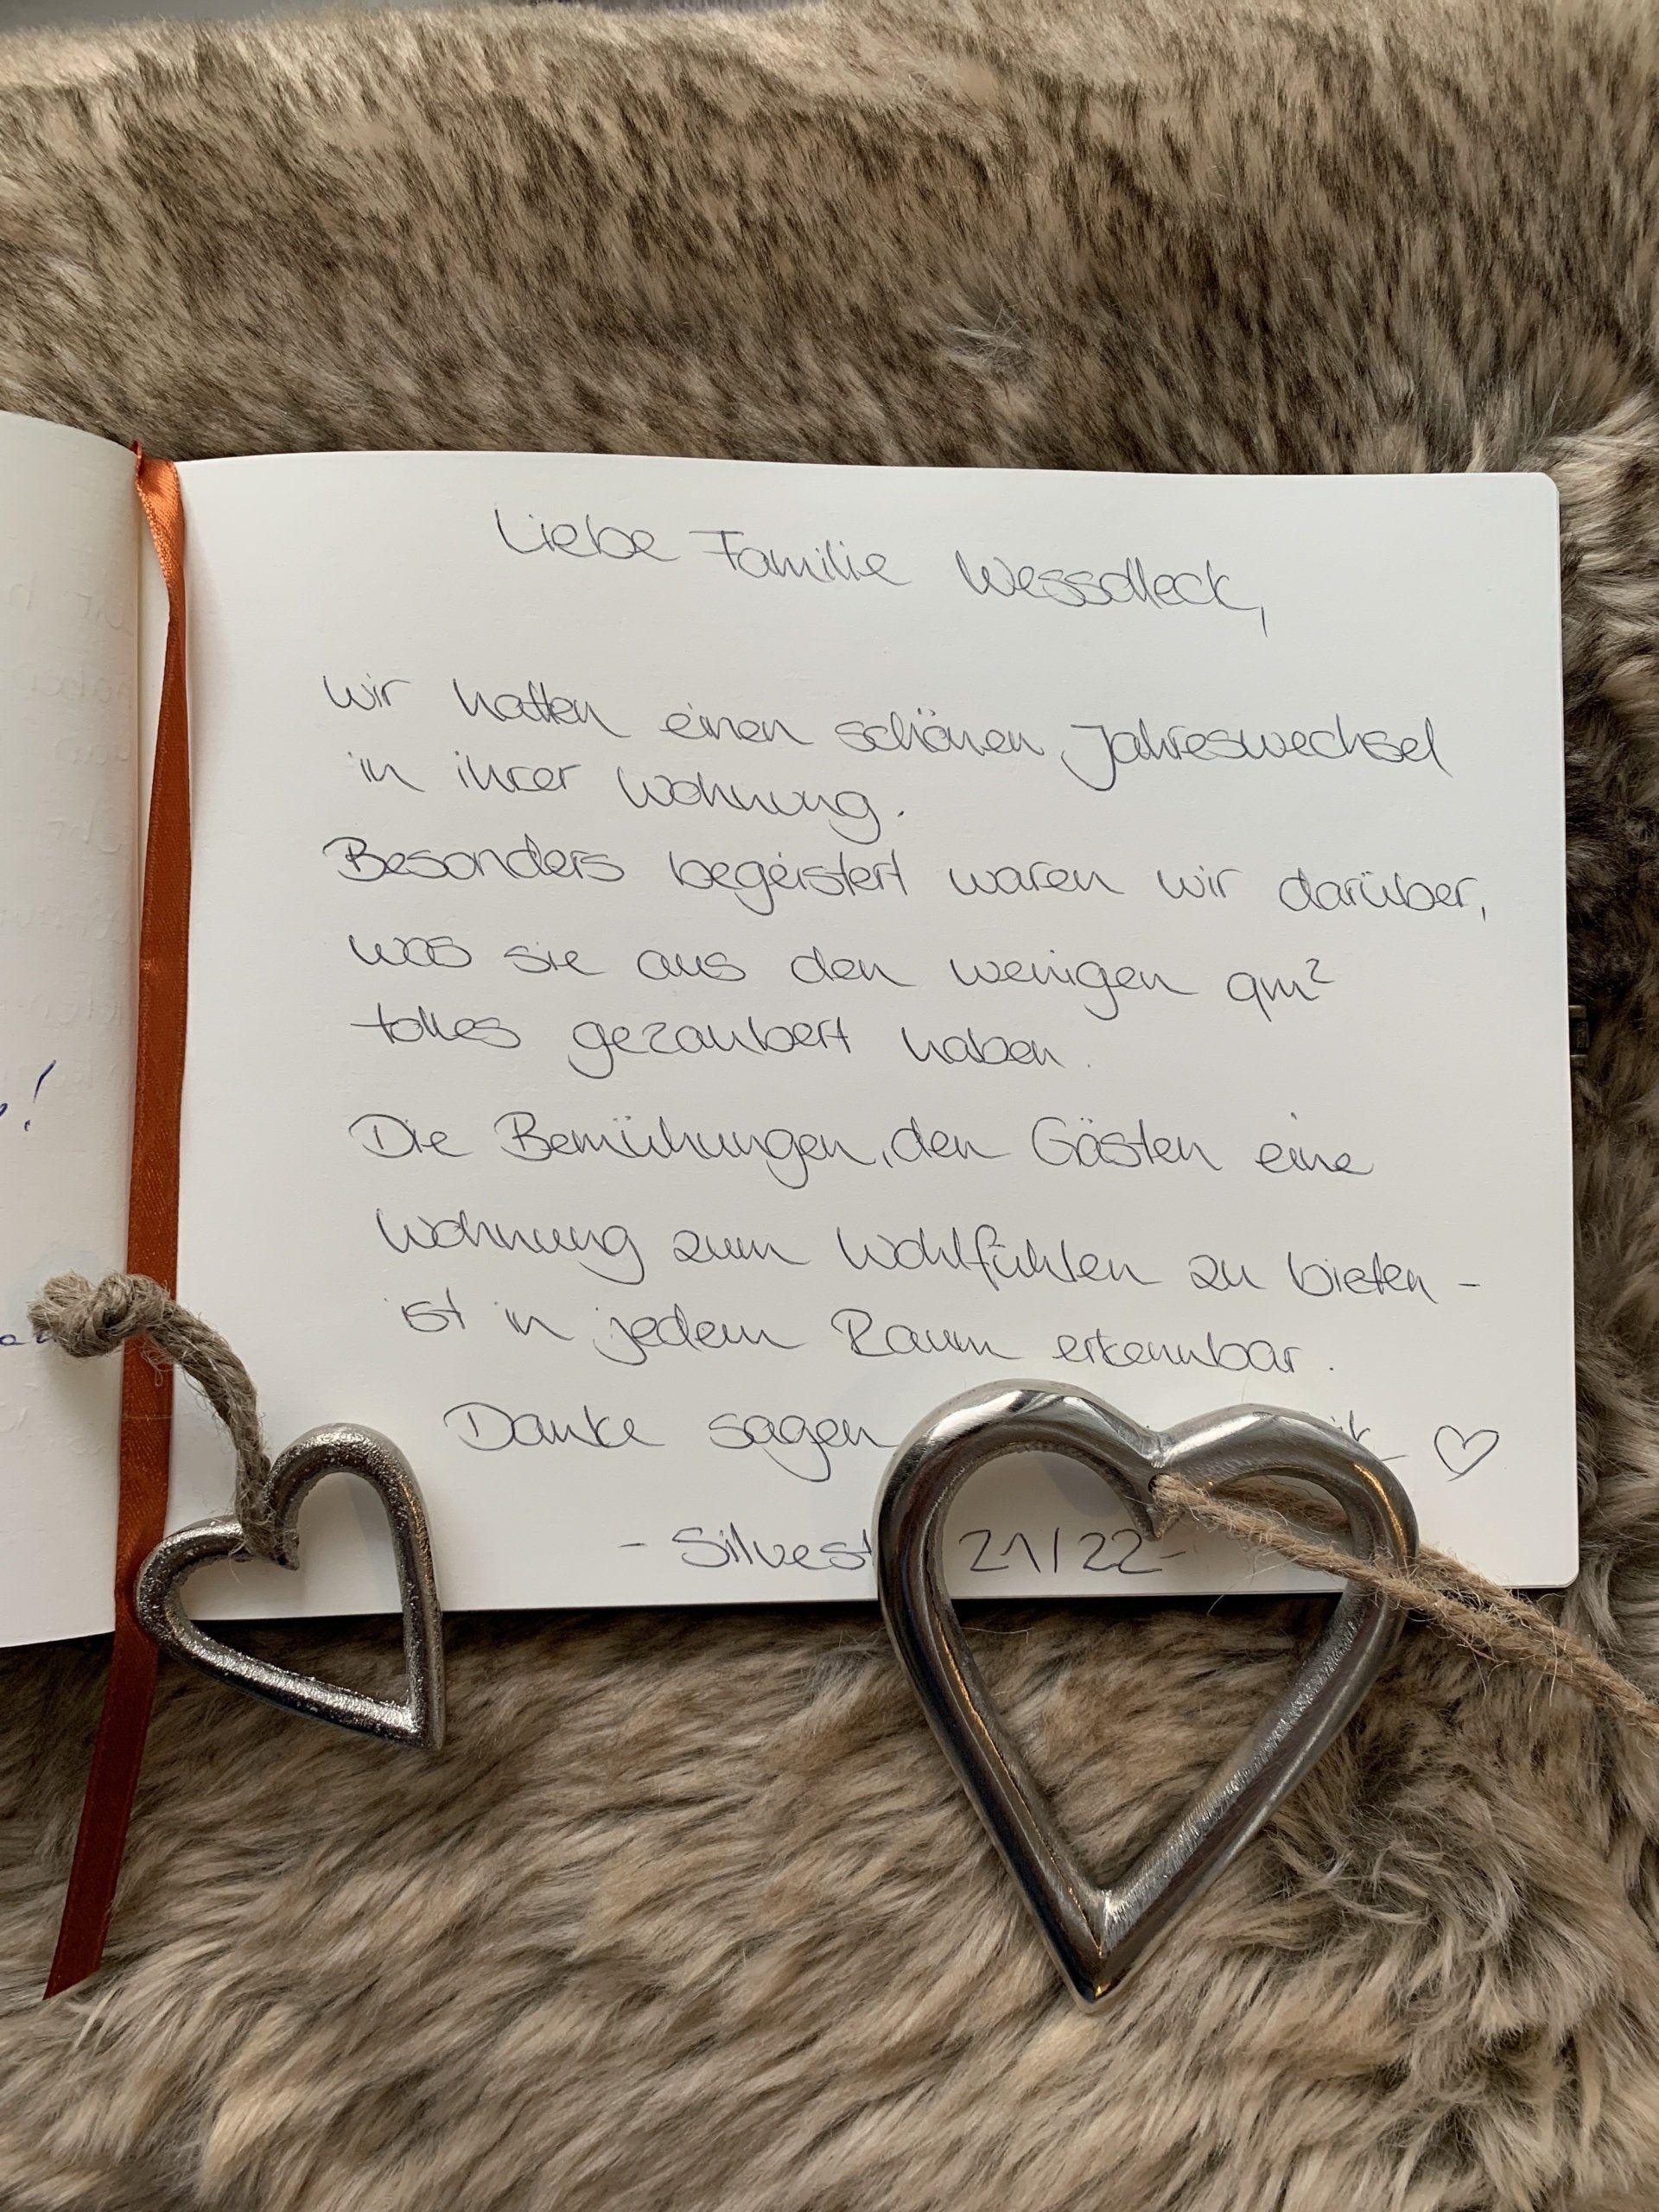 Liebe Familie Wesselleck,
wir hatten einen schönen Jahreswechsel
in ihrer Wohnung.
Besonders begeistert waren wir darüber,
was sie aus den wenigen qm²
tolles gezaubert haben.
Die Bemühungen, den Gästen eine
Wohnung zum Wohlfühlen zu bieten -
ist in jedem Raum erkennbar.
Danke sagen ♡
- Silvest 21/22 -
!